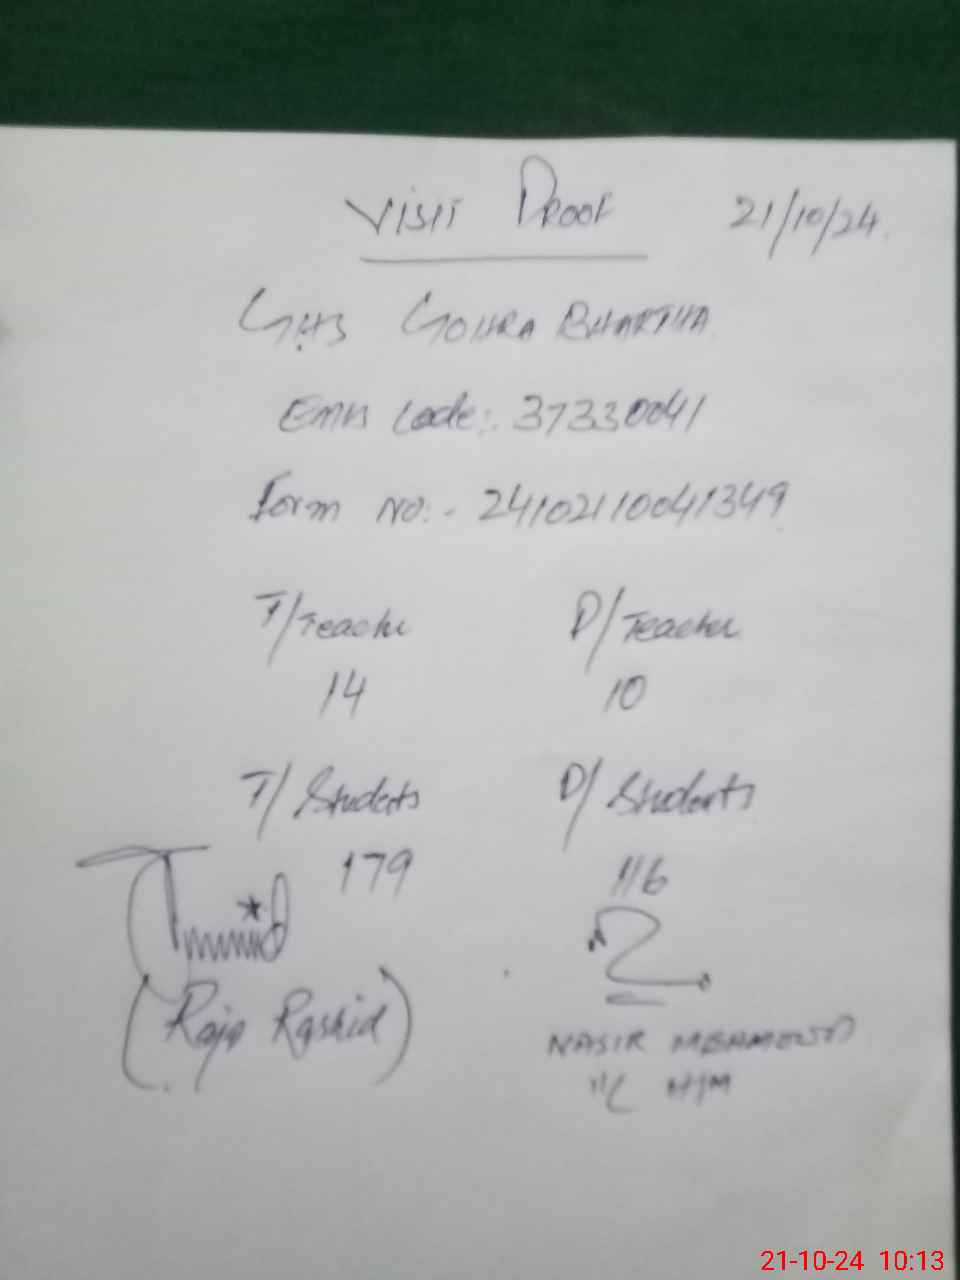 Visit Proof 21/10/24.
GHS GOHRA BHARTHA
Emis Code:. 37330041
Form No:- 24102110041349
T/Teacher D/Teacher
14 10
T/Students D/Students
179 116
(Raja Rashid)
NASIR MEHAMOOD
I/C H/M
21-10-24 10:13